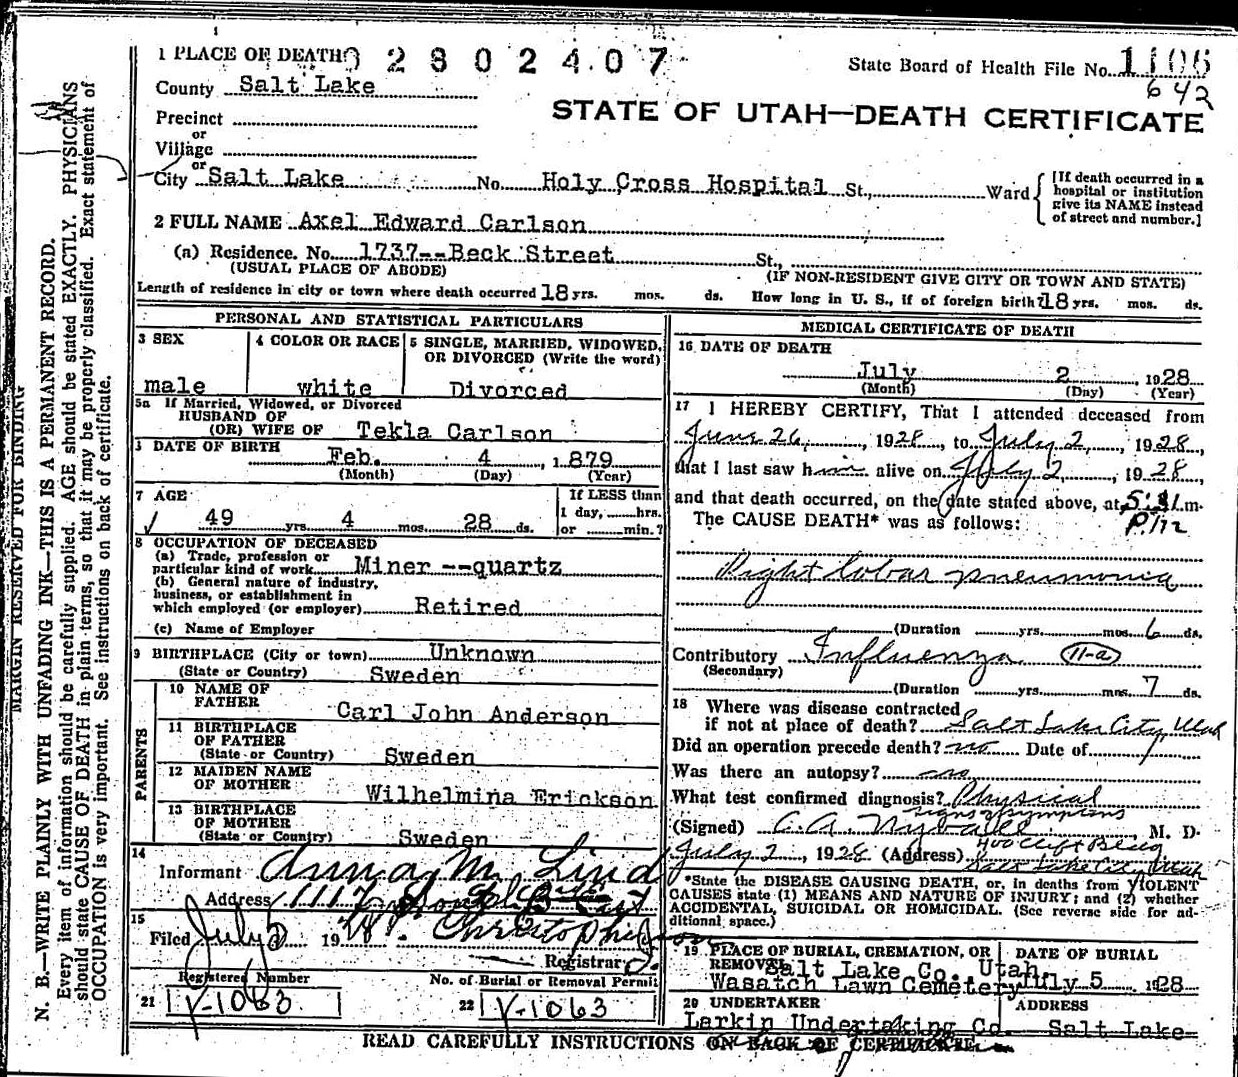 1 PLACE OF DEATH 2802407
State Board of Health File No. 1106
642
County Salt Lake
STATE OF UTAH—DEATH CERTIFICATE
Precinct
or
Village
or
City Salt Lake No. Holy Cross Hospital St., Ward
[If death occurred in a hospital or institution give its NAME instead of street and number.]
2 FULL NAME Axel Edward Carlson
(a) Residence. No. 1737--Beck Street St.,
(USUAL PLACE OF ABODE) (IF NON-RESIDENT GIVE CITY OR TOWN AND STATE)
Length of residence in city or town where death occurred 18 yrs. mos. ds. How long in U. S., if of foreign birth? 18 yrs. mos. ds.
PERSONAL AND STATISTICAL PARTICULARS
3 SEX
male
4 COLOR OR RACE
white
5 SINGLE, MARRIED, WIDOWED, OR DIVORCED (Write the word)
Divorced
5a If Married, Widowed, or Divorced
HUSBAND OF
(OR) WIFE OF Tekla Carlson
DATE OF BIRTH Feb. 4, 1879
(Month) (Day) (Year)
7 AGE
49 yrs. 4 mos. 28 ds.
If LESS than
1 day, hrs.
or min.?
8 OCCUPATION OF DECEASED
(a) Trade, profession or
particular kind of work Miner --quartz
(b) General nature of industry,
business, or establishment in
which employed (or employer) Retired
(c) Name of Employer
9 BIRTHPLACE (City or town) Unknown
(State or Country) Sweden
PARENTS
10 NAME OF
FATHER Carl John Anderson
11 BIRTHPLACE
OF FATHER
(State or Country) Sweden
12 MAIDEN NAME
OF MOTHER Wilhelmina Erickson
13 BIRTHPLACE
OF MOTHER
(State or Country) Sweden
14
Informant Anna M. Lind
Address 1117
15
Filed July 1928
Registrar
Registered Number
21 Y-1063
No. of Burial or Removal Permit
22 Y-1063
MEDICAL CERTIFICATE OF DEATH
16 DATE OF DEATH
July 2, 1928
(Month) (Day) (Year)
17 I HEREBY CERTIFY, That I attended deceased from
June 26, 1928, to July 2, 1928,
that I last saw him alive on July 2, 1928,
and that death occurred, on the date stated above, at 5:31 m.
P.M
The CAUSE DEATH* was as follows:
Right lobar pneumonia
(Duration yrs. mos. 6 ds.
Contributory Influenza 11-a
(Secondary)
(Duration yrs. mos. 7 ds.
18 Where was disease contracted
if not at place of death? Salt Lake City, Utah
Did an operation precede death? no Date of
Was there an autopsy? no
What test confirmed diagnosis? Physical
signs & symptoms
(Signed) C.A. Nyvall, M. D.
July 2, 1928 (Address) 400 Clift Bldg
Salt Lake City, Utah
*State the DISEASE CAUSING DEATH, or, in deaths from VIOLENT
CAUSES state (1) MEANS AND NATURE OF INJURY; and (2) whether
ACCIDENTAL, SUICIDAL OR HOMICIDAL. (See reverse side for ad-
ditional space.)
19 PLACE OF BURIAL, CREMATION, OR
REMOVAL Salt Lake Co. Utah.
Wasatch Lawn Cemetery
DATE OF BURIAL
July 5 1928
20 UNDERTAKER
Larkin Undertaking Co.
ADDRESS
Salt Lake
READ CAREFULLY INSTRUCTIONS ON BACK OF CERTIFICATE
MARGIN RESERVED FOR BINDING
N. B.—WRITE PLAINLY WITH UNFADING INK—THIS IS A PERMANENT RECORD.
Every item of information should be carefully supplied. AGE should be stated EXACTLY. PHYSICIANS
should state CAUSE OF DEATH in plain terms, so that it may be properly classified. Exact statement of
OCCUPATION is very important. See instructions on back of certificate.